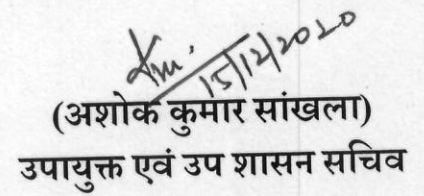 15/12/2020
(अशोक कुमार सांखला)
उपायुक्त एवं उप शासन सचिव